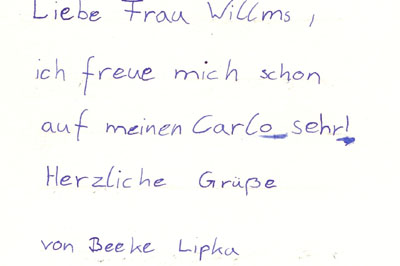 Liebe Frau Willms,
ich freue mich schon
auf meinen Carlo sehr!
Herzliche Grüße
von Beeke Lipka